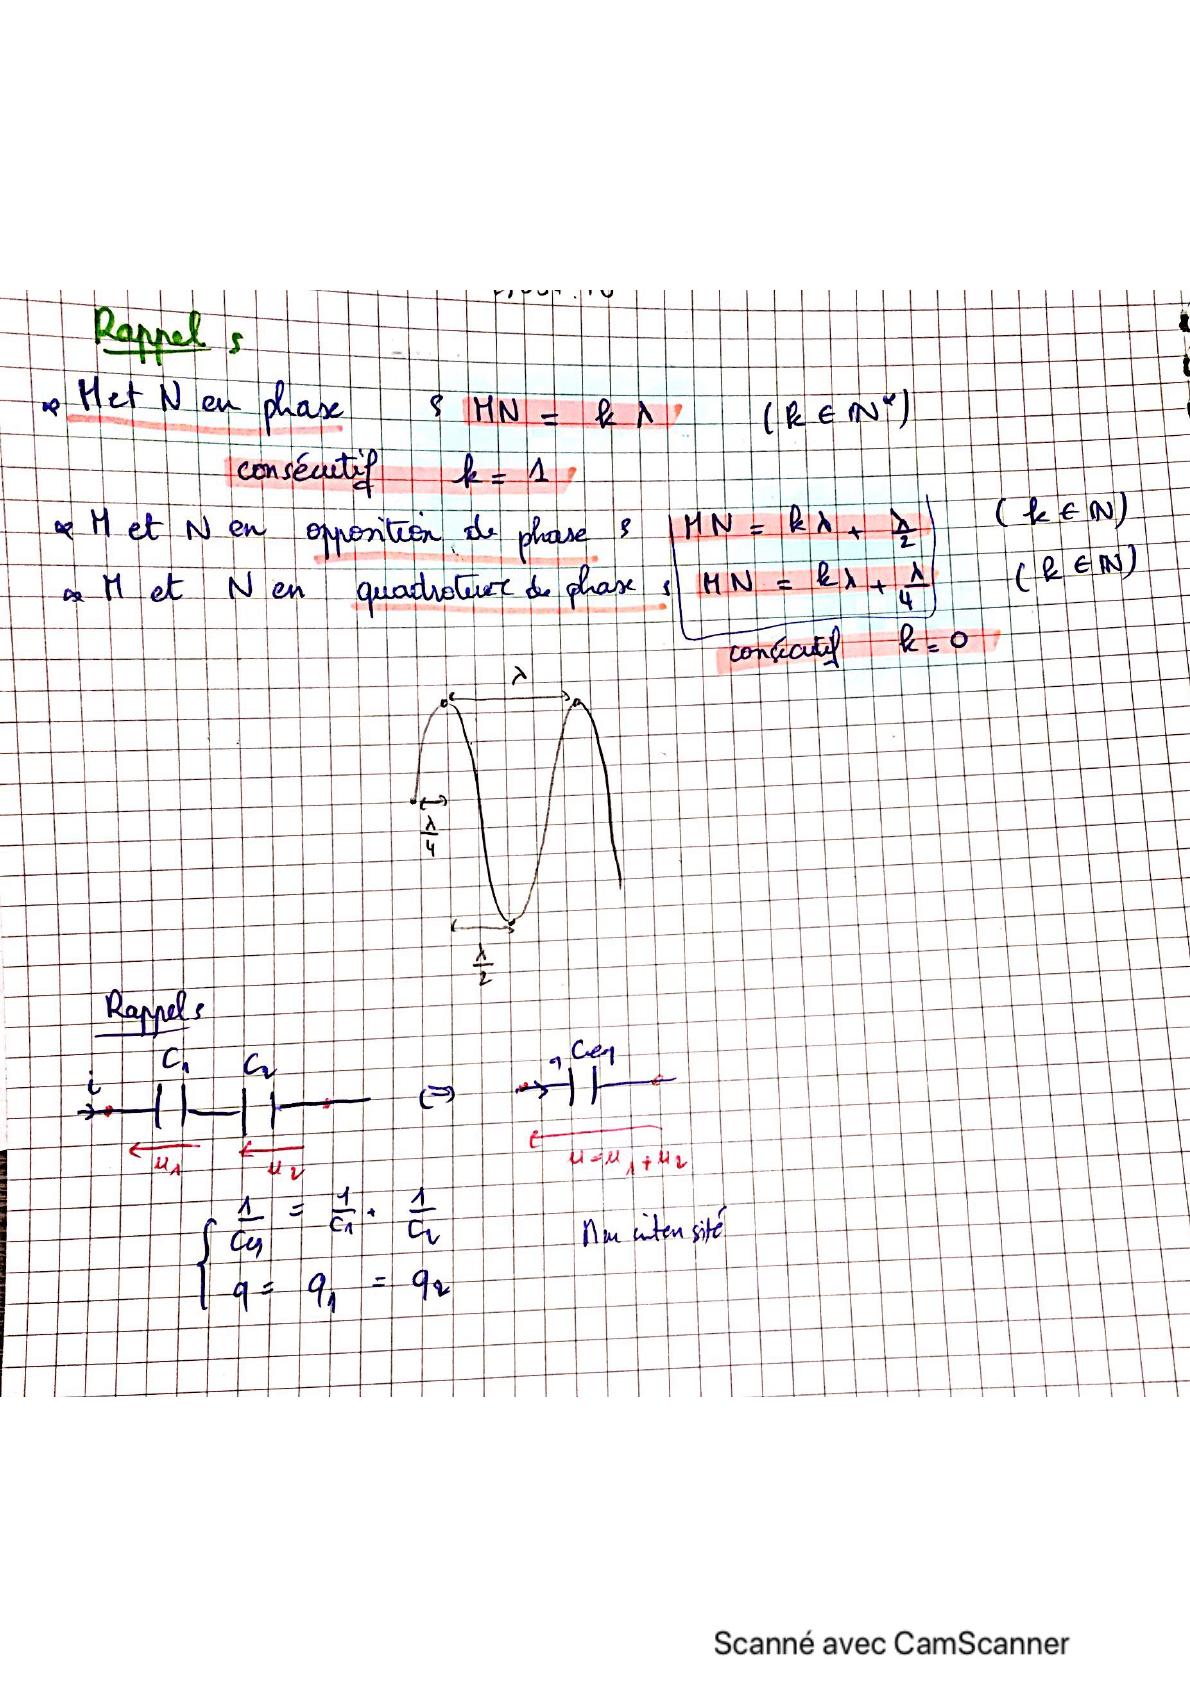 Rappels
M et N en phase : MN = k λ (k ∈ ℕ*)
consécutif k = 1
M et N en opposition de phase : MN = kλ + λ/2 (k ∈ ℕ)
M et N en quadrature de phase : MN = kλ + λ/4 (k ∈ ℕ)
consécutif k = 0
λ
λ/4
λ/2
Rappels
i C₁ C₂ ⇔ Ceq
u₁ u₂ u = u₁ + u₂
1/Ceq = 1/C₁ + 1/C₂
intensité
q = q₁ = q₂
Scanné avec CamScanner